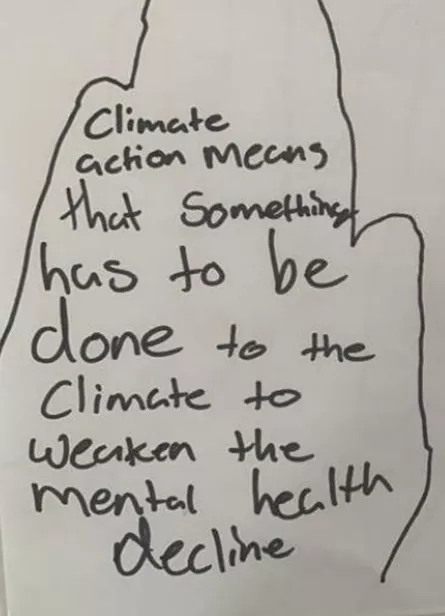 Climate
action means
that Something
has to be
done to the
Climate to
weaken the
mental health
decline